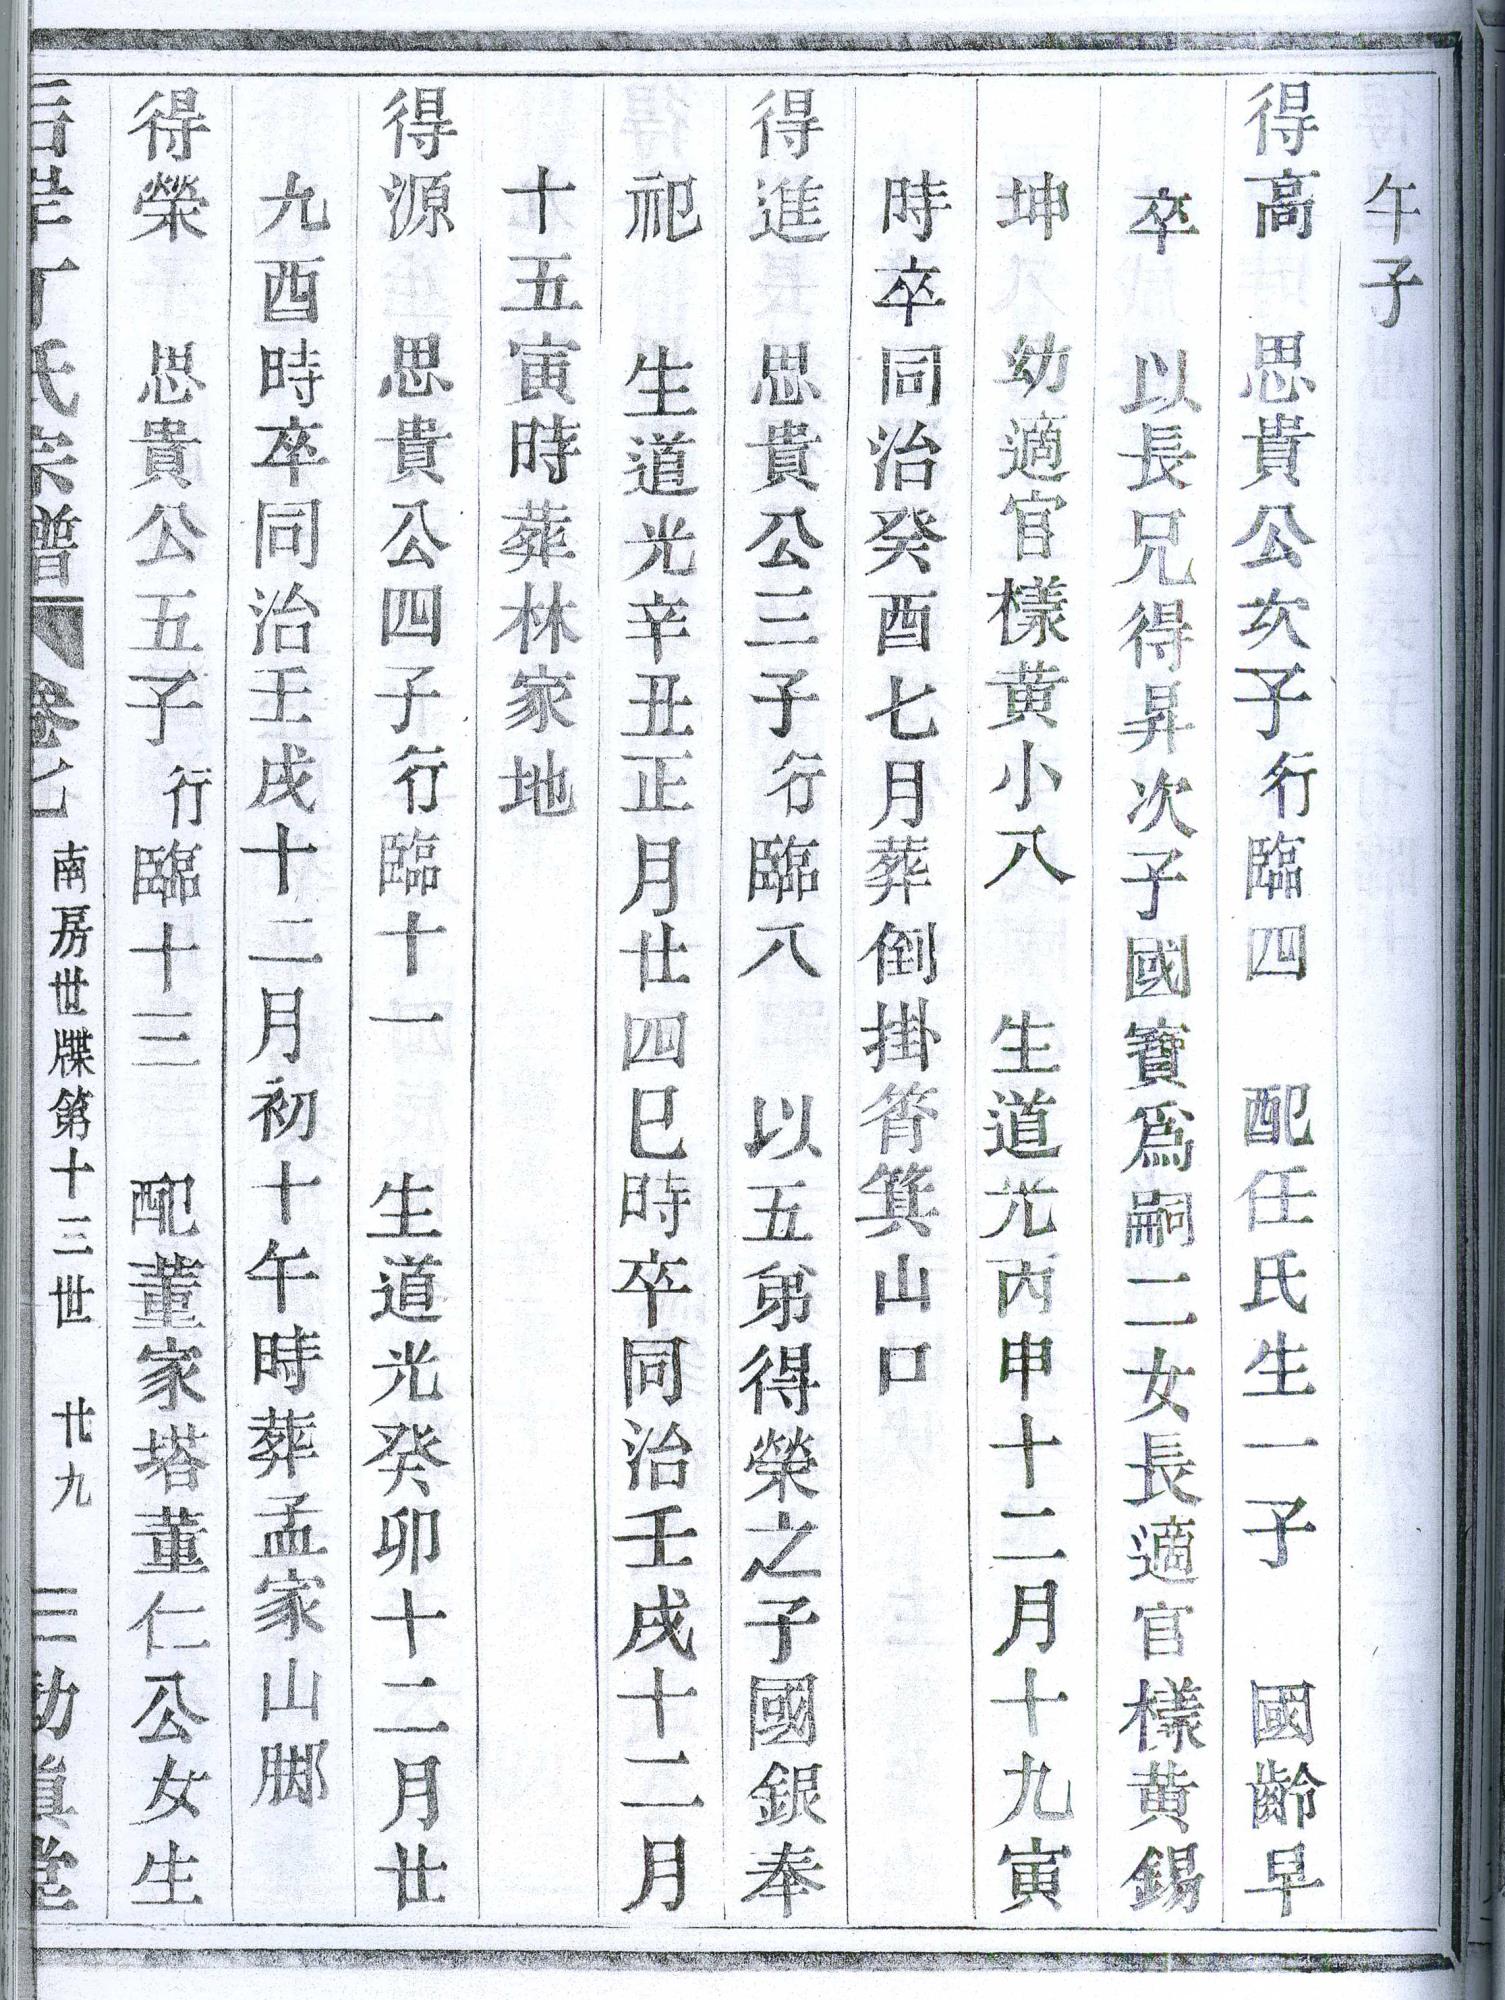 午子
得高　思貴公次子行臨四　配任氏生一子　國齡早
卒　以長兄得昇次子國寶爲嗣二女長適官樣黄錫
坤　幼適官樣黄小八　生道光丙申十二月十九寅
時卒同治癸酉七月葬倒掛筲箕山口
得進　思貴公三子行臨八　以五弟得榮之子國銀奉
祀　生道光辛丑正月廿四巳時卒同治壬戌十二月
十五寅時葬林家地
得源　思貴公四子行臨十一　生道光癸卯十二月廿
九酉時卒同治壬戌十二月初十午時葬孟家山脚
得榮　思貴公五子行臨十三　配董家塔董仁公女生
丁氏宗譜 卷七 南房世牒第十三世 廿九